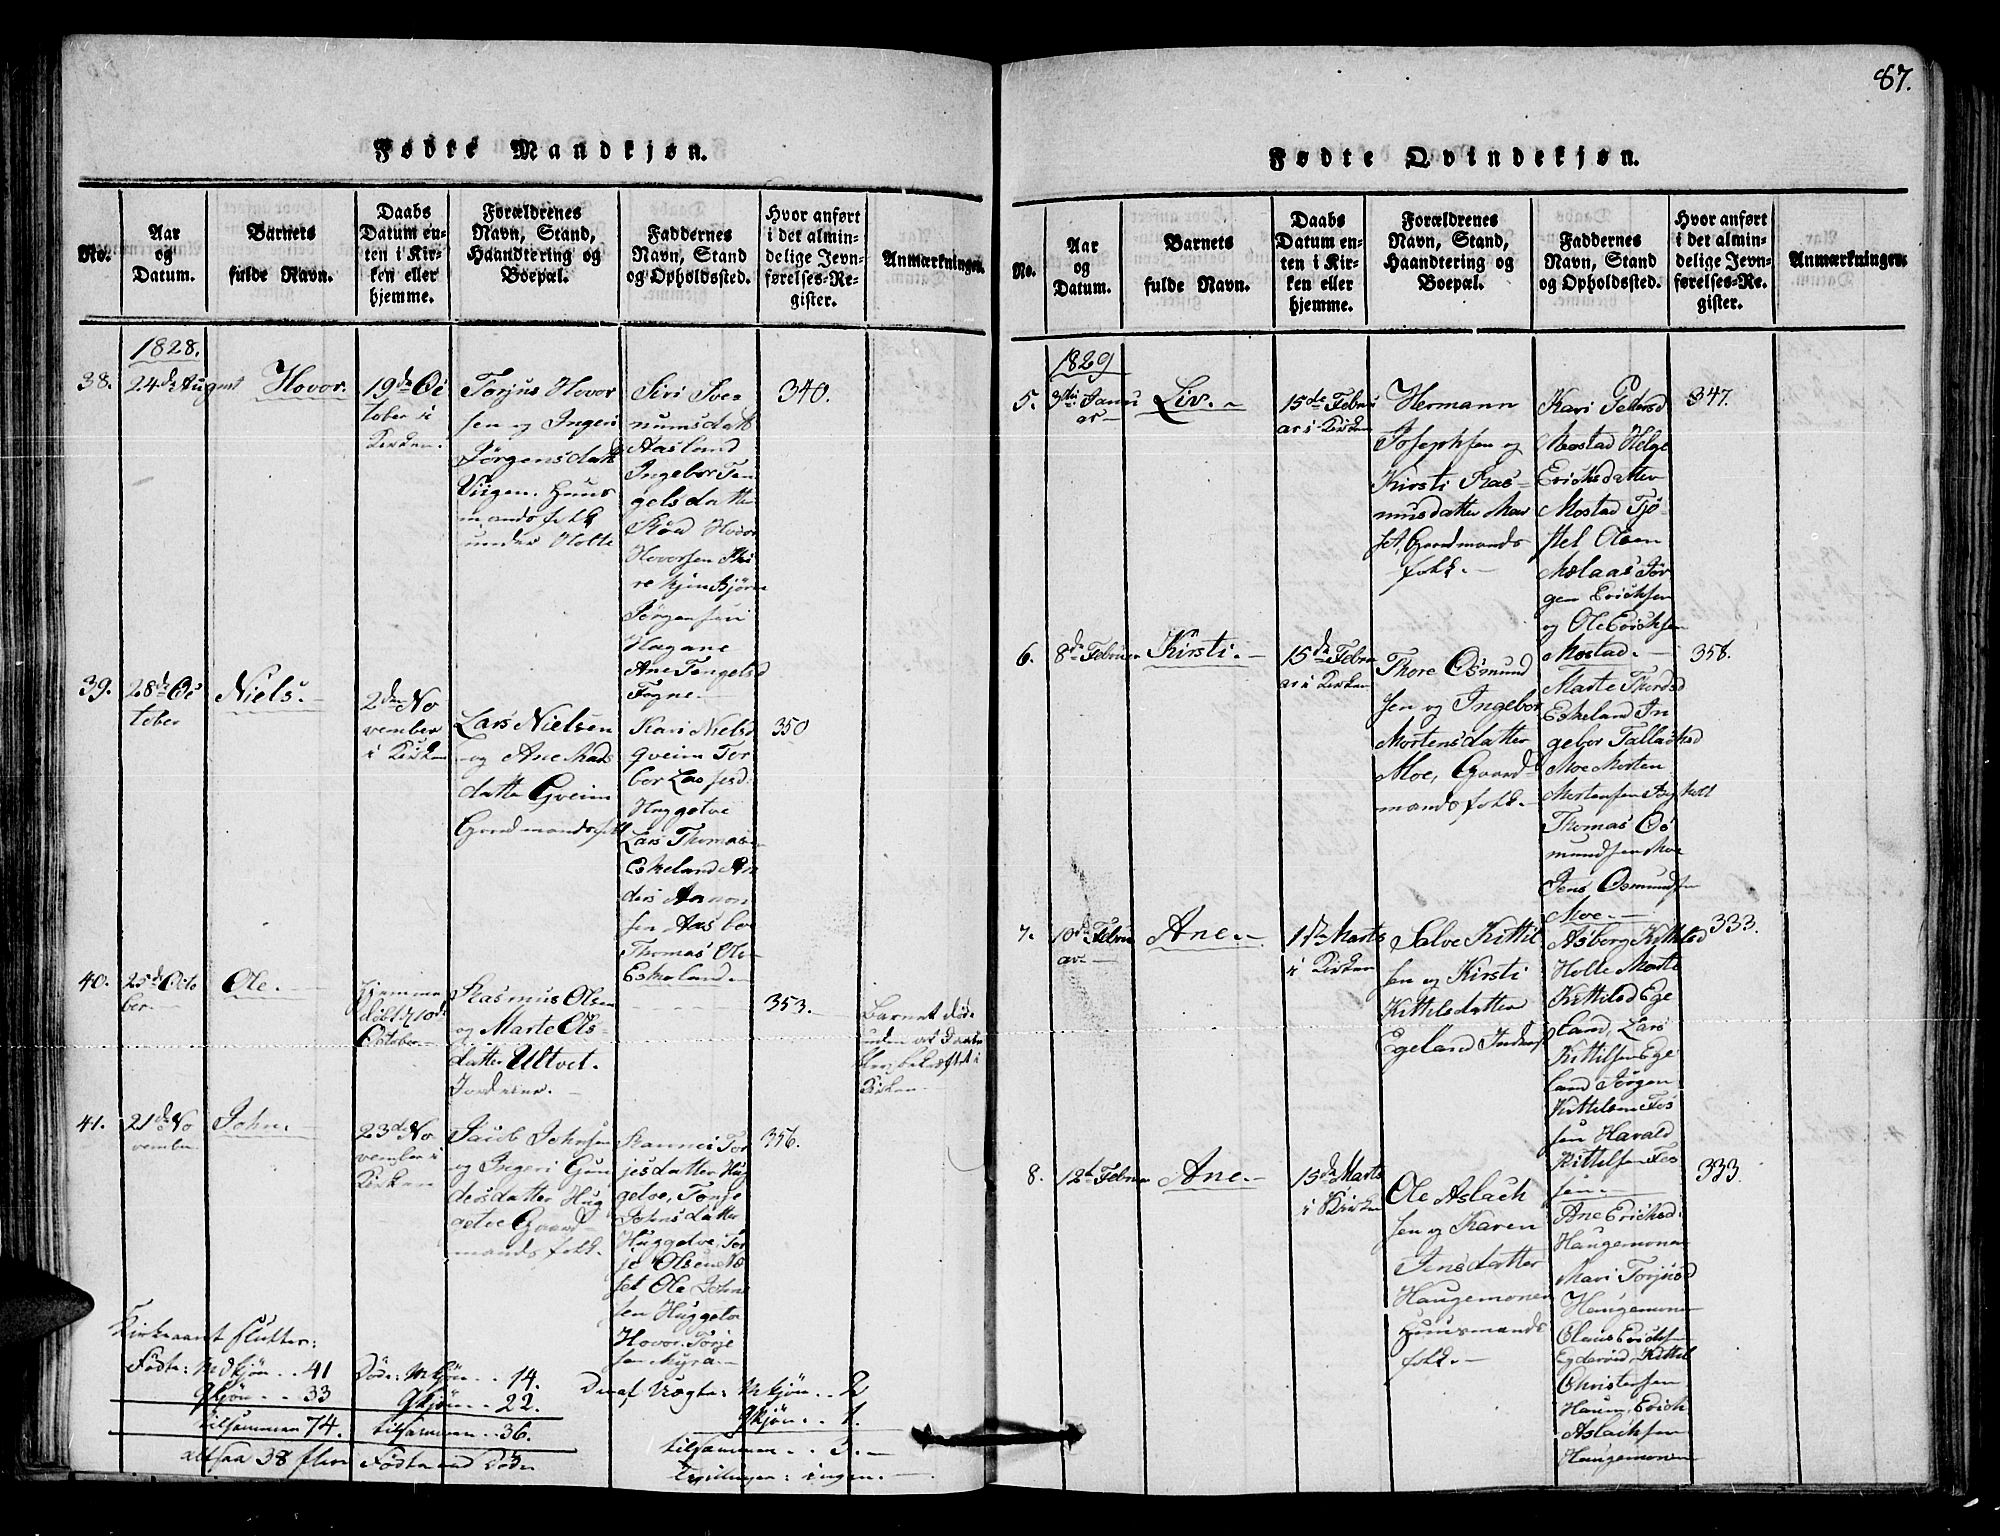 87.
Fødte Mandkjøn.
No.
Aar
og
Datum.
Barnets
fulde Navn.
Daabs
Datum en-
ten i Kir-
ken eller
hjemme.
Forældrenes
Navn, Stand,
Haandtering og
Boepæl.
Faddernes
Navn, Stand
og Opholdssted.
Hvor anført
i det almin-
delige Jevn-
førelses-Re-
gister.
Anmærkninger.
1828.
38.
24de August
Hovor.
19de Oc
tober i
Kirken.
Torjus Hovor
sen og Ingeri
Jørgensdatt
Huus
mandsfolk
under Holte
Siri Sve
numsdatt
Aasland
Ingebor Ten
gelsdatter
Hovor
Hovorsen
Bjørn
Jørgensen
Hagane
Ane Tengelsd
Fogne.
340.
39.
28de Oc
tober
Niels.
2den No
vember
i Kirken
Lars Nielsen
og Ane Mads
datter Gveim
Gaardmandsfolk
Kari Nielsd
Gveim Tor
bor Lassesd.
Huggetve
Lars Thomas
Eskeland An
ders Aanon
sen Aasbøe
Thomas Ole
Eskeland.
350
40.
25de Octo
ber.
Ole.
Hjemme
døbt
October
Rasmus Olsen
og Marte Ols-
datter Ultvet.
Inderster.
353.
Barnet døde
uden at Daaben
blev bekræftet i
Kirken.
41.
21de No
vember
John.
23de No
vember i
Kirken
Jacob Johnsen
og Ingeri Gun
dersdatter Hug
getve Gaard-
mandsfolk.
Rannei Tor
jesdatter Hug
getve, Tonje
Johnsdatter
Huggetve, Tor
je Olsen
set Ole John
sen Huggetve
Hovor Torje
sen Myra
356.
Kirkeaaret slutter:
Fødte: Mkjøn . . 41
Qkjøn . . 33
tilsammen 74.
altsaa 38 flere Fødte end Døde
Døde: Mkjøn . . 14.
Qkjøn . . 22.
tilsammen . . 36.
Deraf Uægte: Mkjøn . . 2
Qkjøn . . 1.
tilsammen . . 3.
Tvillinger: ingen.
Fødte Qvindekjøn.
No.
Aar
og
Datum.
Barnets
fulde Navn.
Daabs
Datum en-
ten i Kir-
ken eller
hjemme.
Forældrenes
Navn, Stand,
Haandtering og
Boepæl.
Faddernes
Navn, Stand
og Opholdssted.
Hvor anført
i det almin-
delige Jevn-
førelses-Re-
gister.
Anmærkninger.
1829
5.
3die Janu
ar
Liv.
15de Febru
ar i Kirken
Hermann
Josephsen og
Kirsti Ras-
musdatter Mor
set, Gaardmands
folk.
Kari Pedersd
Mostad Helge
Erichsdatter
Mostad Tjø
stel Olsen
Molaas Jør
gen Erichsen
og Ole Erichsen
Mostad.
347.
6.
8de Februar
Kirsti.
15de Febru
ar i Kirken
Thore Osmund
sen og Ingebor
Mortensdatter
Moe, Gaard-
mandsfolk.
Marte Thordsd
Eskeland In
gebor Tallachsd
Moe Morten
Mortensen
Thomas Os
mundsen Moe
Jens Osmundsen
Moe.
358.
7.
10de Febru
ar.
Ane.
1ste Marts
i Kirken
Salve Kittil
sen og Kirsti
Kittelsdatter
Egeland Inderst
Asborg Kittilsd
Holle Marte
Kittilsd Ege
land, Lars
Kittilsen Ege
land Jørgen
Kittelsen Fos
sen Harald
Kittilsen Fos
sen.
333.
8.
12te Februar
Ane.
15de Marts
i Kirken
Ole Aslach
sen og Karen
Jensdatter
Haugemonen
Huusmands
folk.
Ane Erichsd.
Haugemonen
Mari Torjusd
Haugemonen
Olaus Erichsen
Kittil
Christensen
Haum, Erich
Aslachsen
Haugemonen
333.